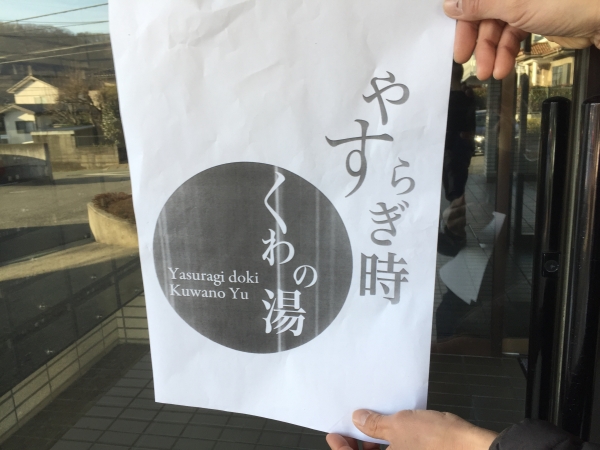 やすらぎ時
くわの湯
Yasuragi doki
Kuwano Yu